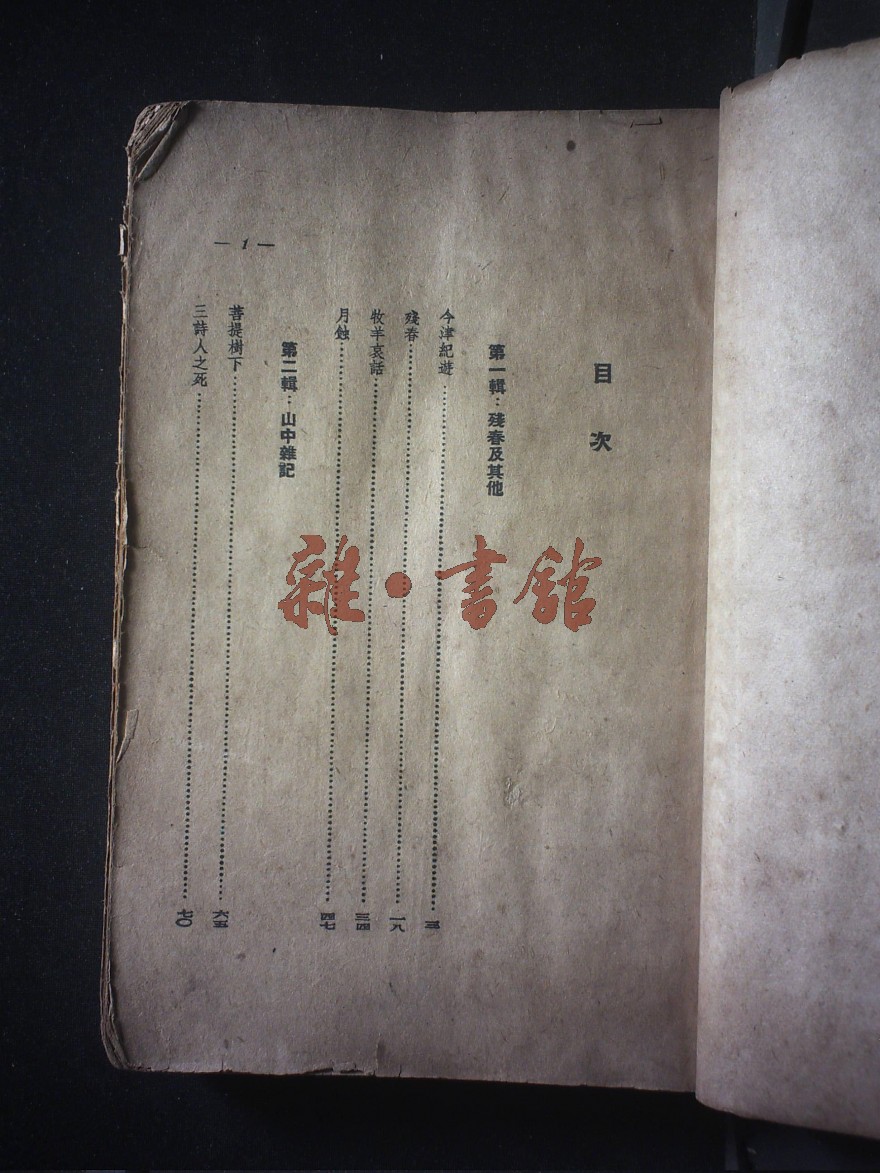 目次
第一輯：殘春及其他
今津紀遊……三
殘春……一八
牧羊哀話……三四
月蝕……四七
第二輯：山中雜記
菩提樹下……六五
三詩人之死……七〇
— 1 —
雜·書館